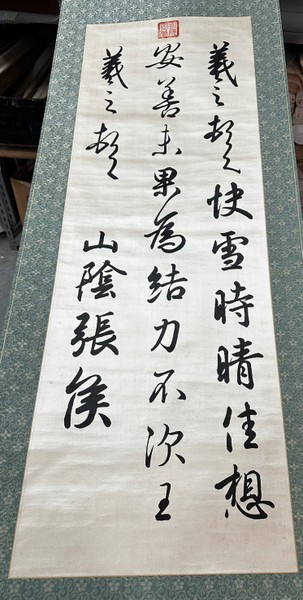 羲之頓首快雪時晴佳想
安善未果為結力不次王
羲之頓首 山陰張侯